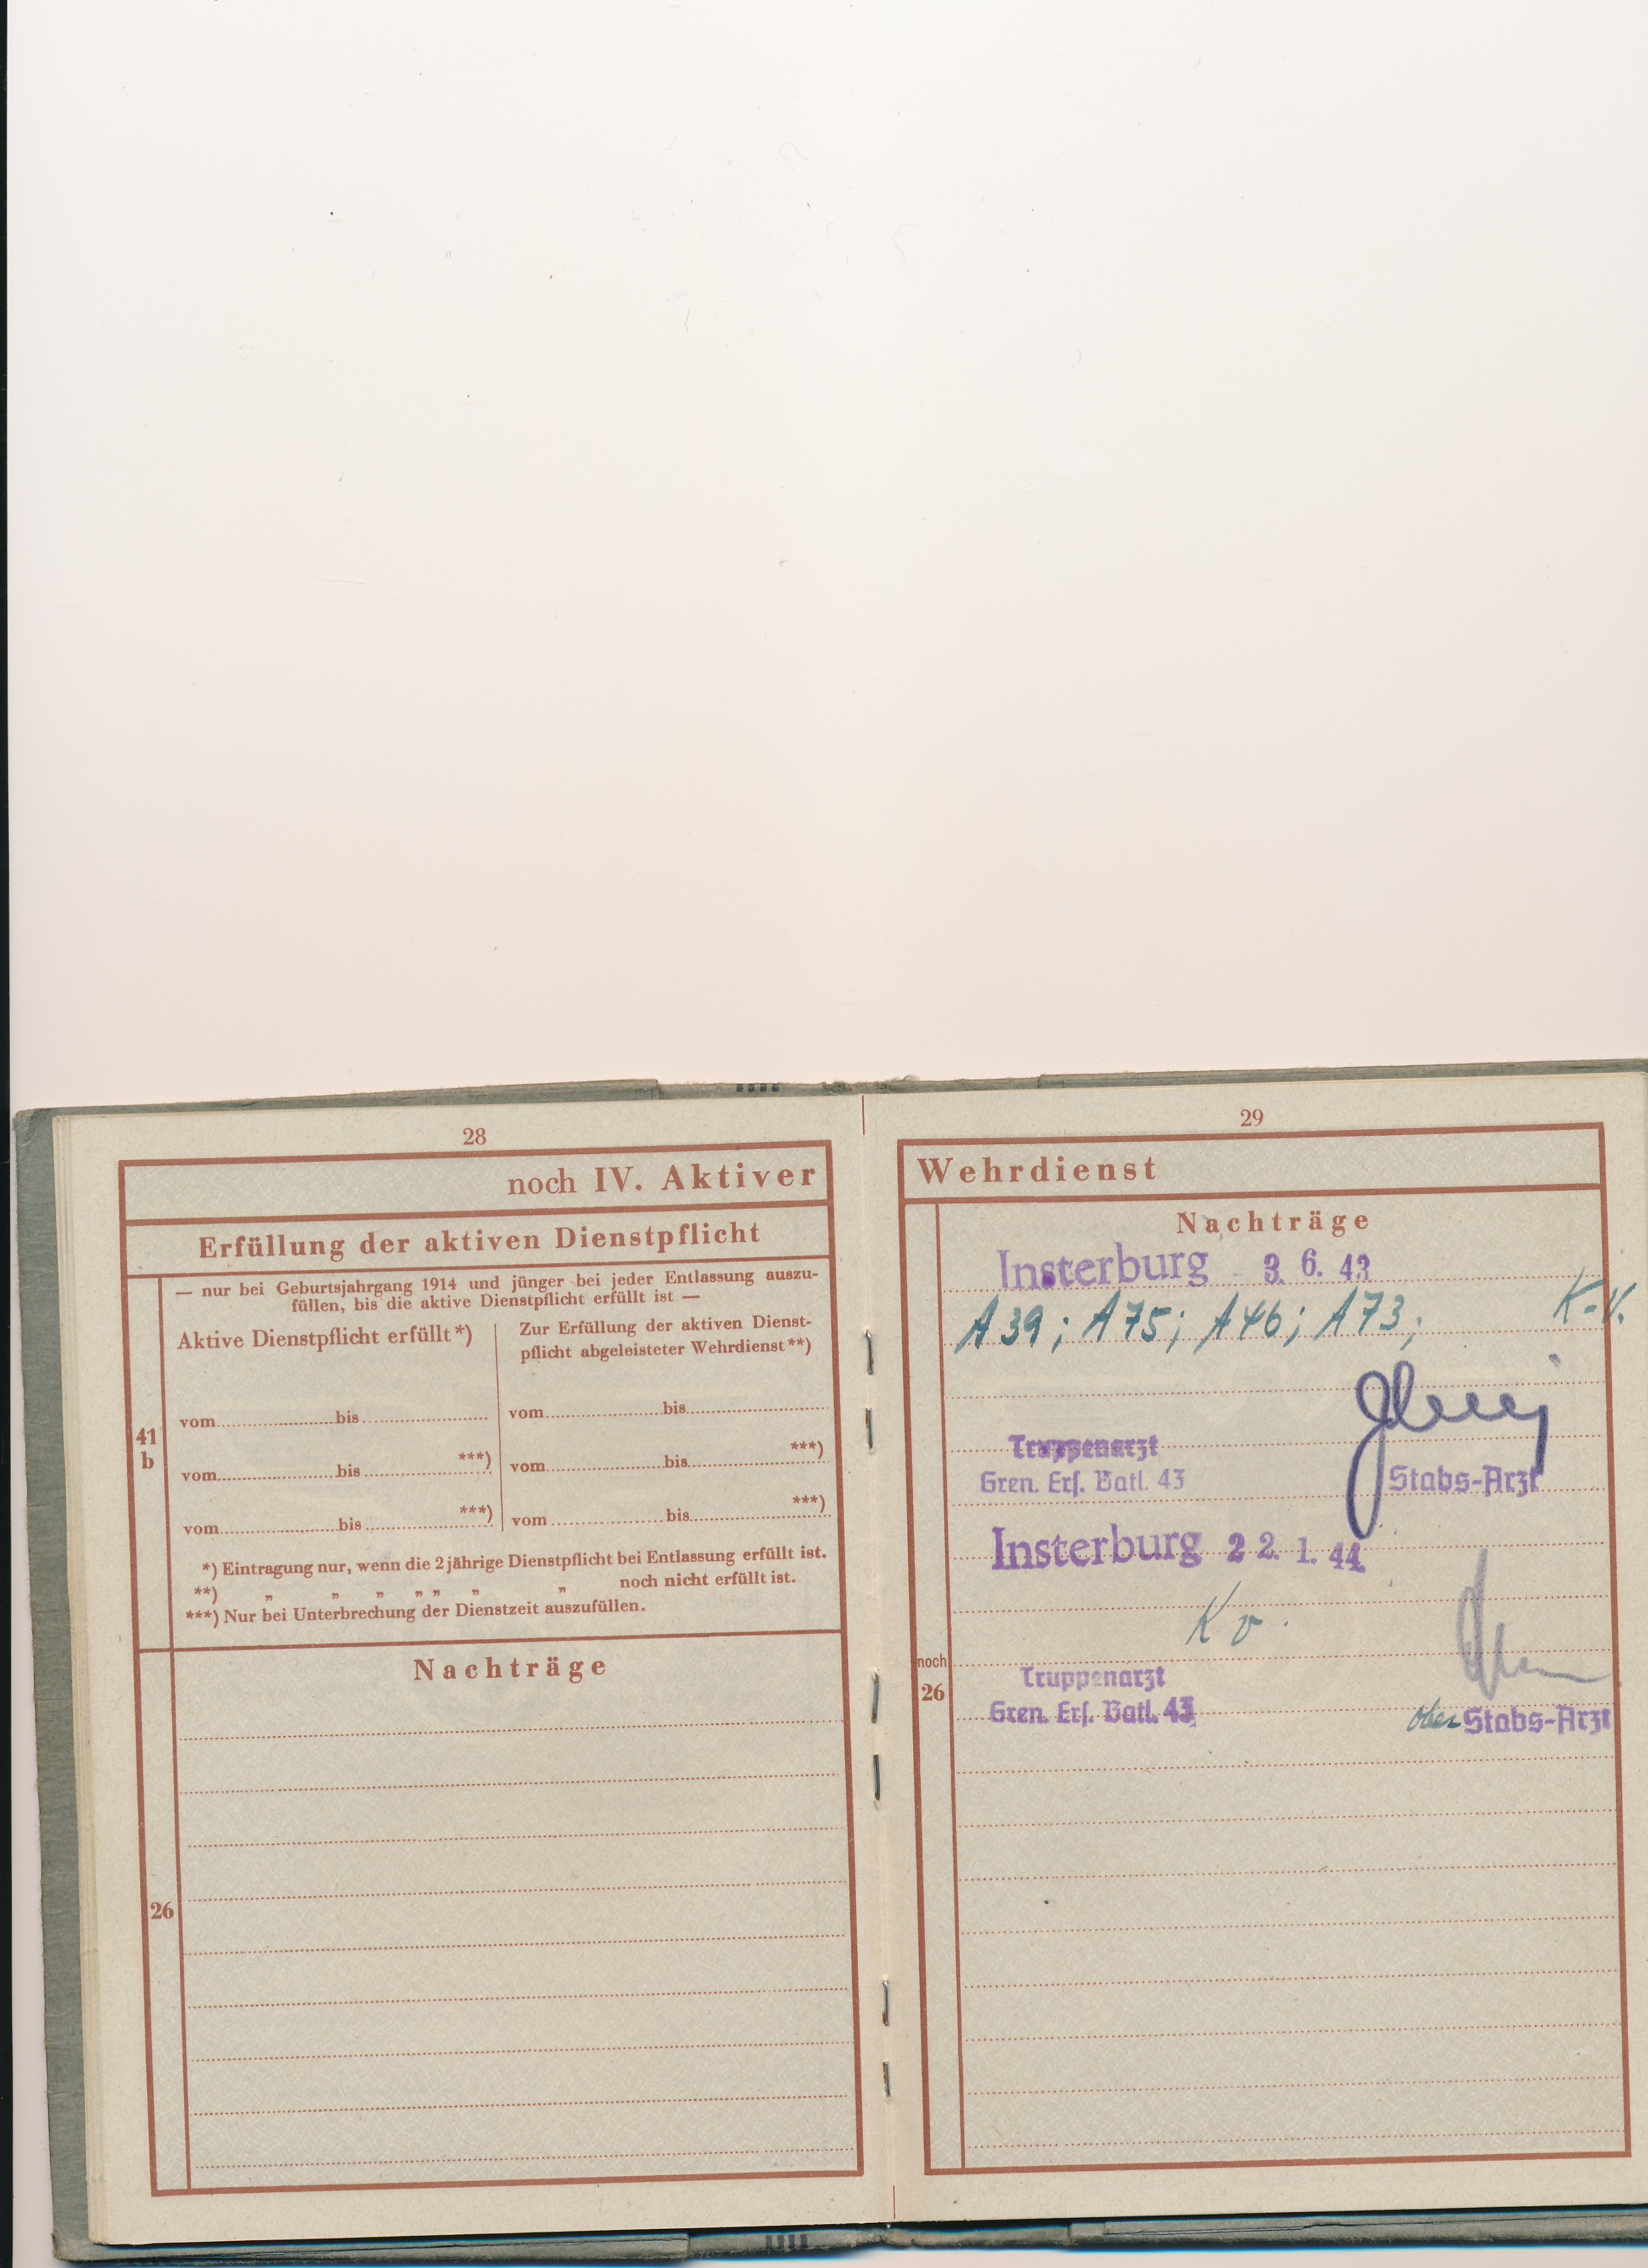 28
noch IV. Aktiver
Erfüllung der aktiven Dienstpflicht
— nur bei Geburtsjahrgang 1914 und jünger bei jeder Entlassung auszu-
füllen, bis die aktive Dienstpflicht erfüllt ist —
Aktive Dienstpflicht erfüllt*)
Zur Erfüllung der aktiven Dienst-
pflicht abgeleisteter Wehrdienst**)
41
b
vom bis
vom bis
***)
vom bis
***)
vom bis
***)
vom bis
***)
vom bis
*) Eintragung nur, wenn die 2jährige Dienstpflicht bei Entlassung erfüllt ist.
**) „ „ „ „ „ „ „ noch nicht erfüllt ist.
***) Nur bei Unterbrechung der Dienstzeit auszufüllen.
Nachträge
26
29
Wehrdienst
Nachträge
Insterburg - 3. 6. 43
A 39; A 75; A 46; A 73; K.V.
Truppenarzt
Gren. Ers. Batl. 43
Stabs-Arzt
Insterburg 22. 1. 44
Kv.
noch
26
Truppenarzt
Gren. Ers. Batl. 43
Ober Stabs-Arzt